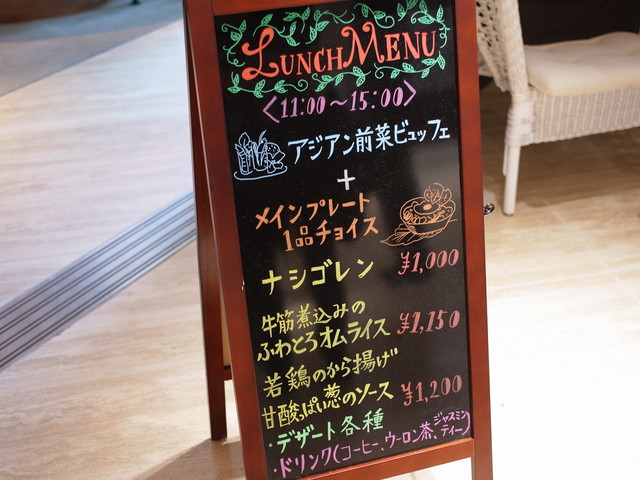 LUNCH MENU
〈11:00～15:00〉
アジアン前菜ビュッフェ
+
メインプレート
1品チョイス
ナシゴレン ¥1,000
牛筋煮込みの
ふわとろオムライス ¥1,150
若鶏のから揚げ
甘酸っぱい葱のソース ¥1,200
・デザート各種
・ドリンク(コーヒー、ウーロン茶、ジャスミンティー)